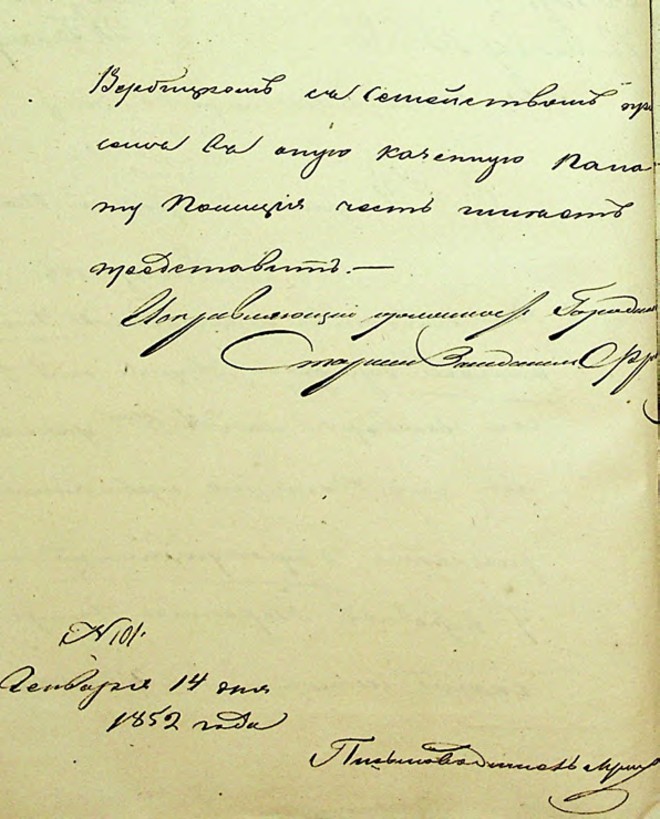 Вербицкомъ съ семействомъ при
семъ въ оную казенную Пала
ту Полиція честь имѣетъ
представить.—
Исправляющій должность Городнич
Старшій Засѣдатель
№ 101.
Генваря 14 дня
1852 года
Письмоводитель